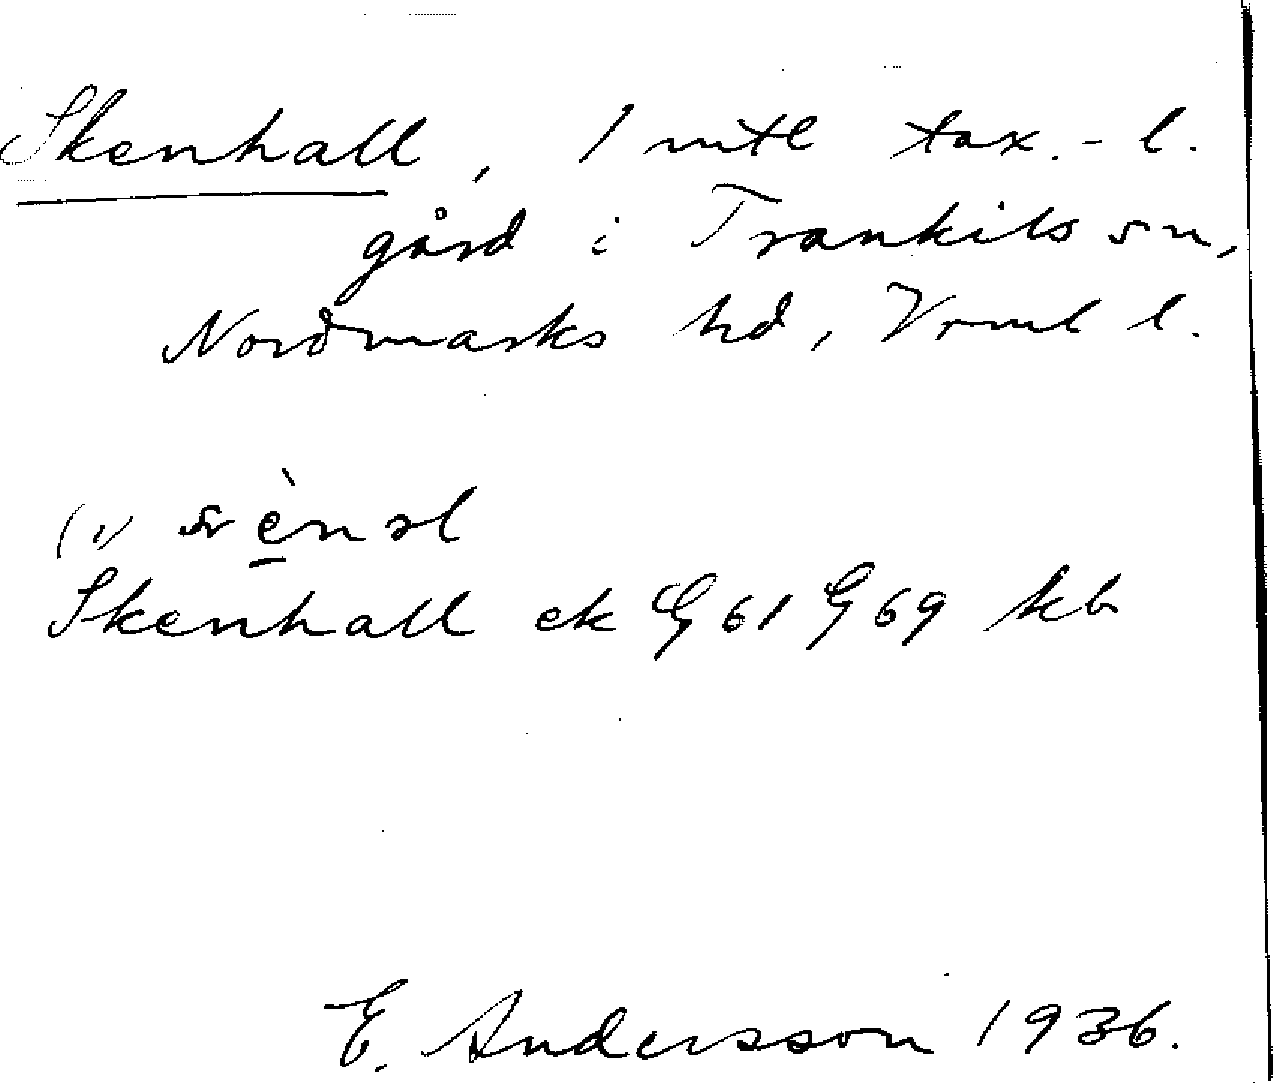 Skenhall, 1 mtl tax.-l.
gård i Trankils sn,
Nordmarks hd, Vrml l.
Skenhall ek G 61 G 69 kb
E. Andersson 1936.